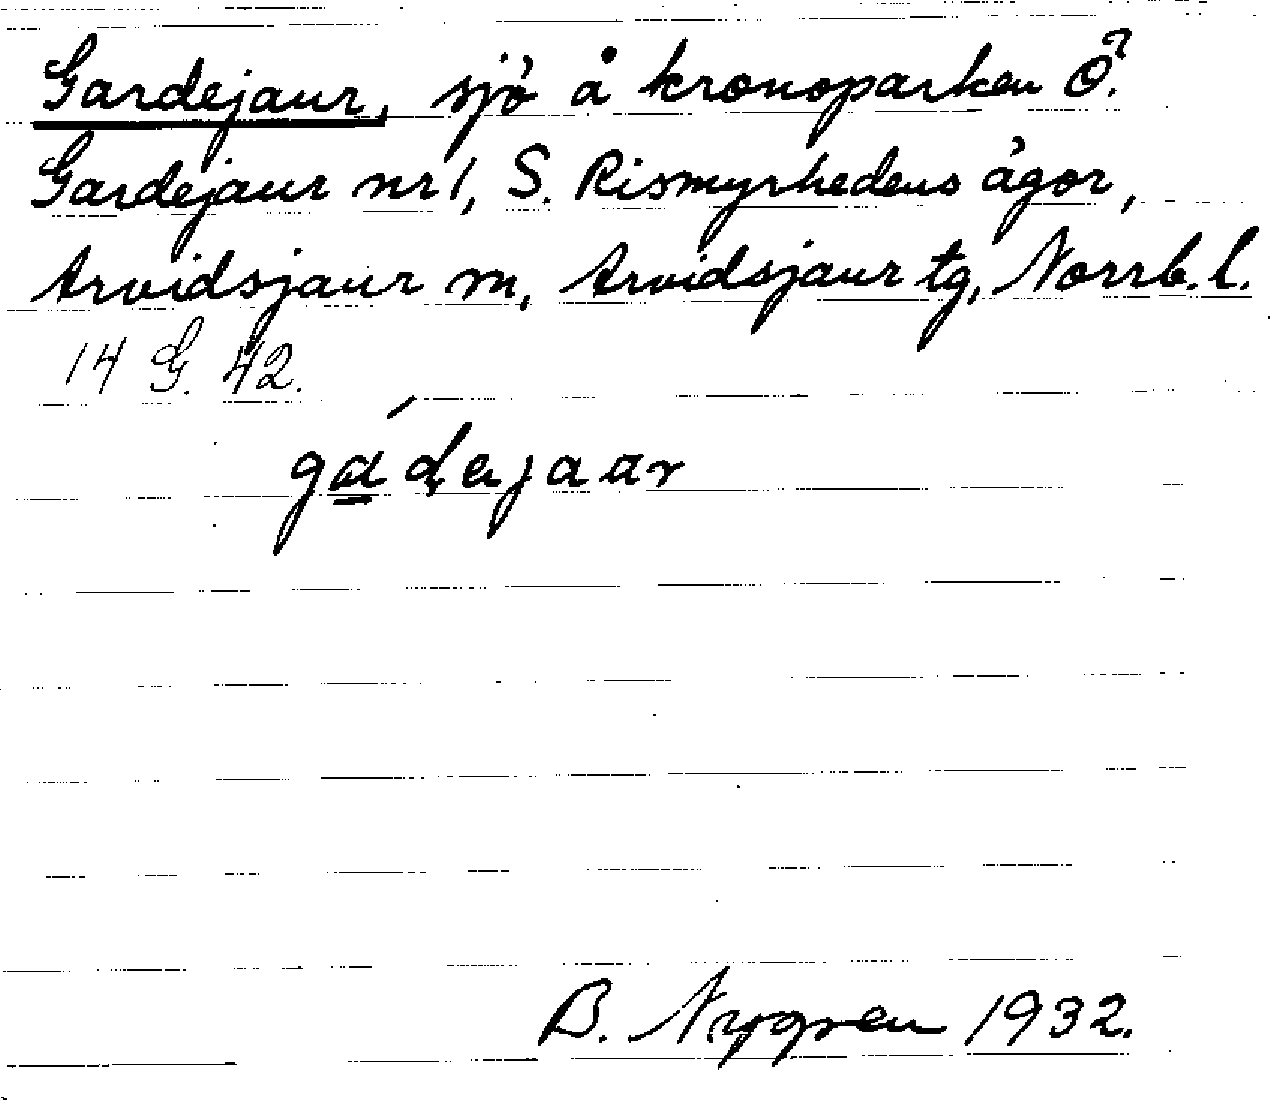 Gardejaur, sjö å kronoparken Ö.
Gardejaur nr 1, S. Rismyrhedens ägor,
Arvidsjaur sn, Arvidsjaur tg, Norrb. l.
14 G. 42.
gádejaur
B. Nygren 1932.